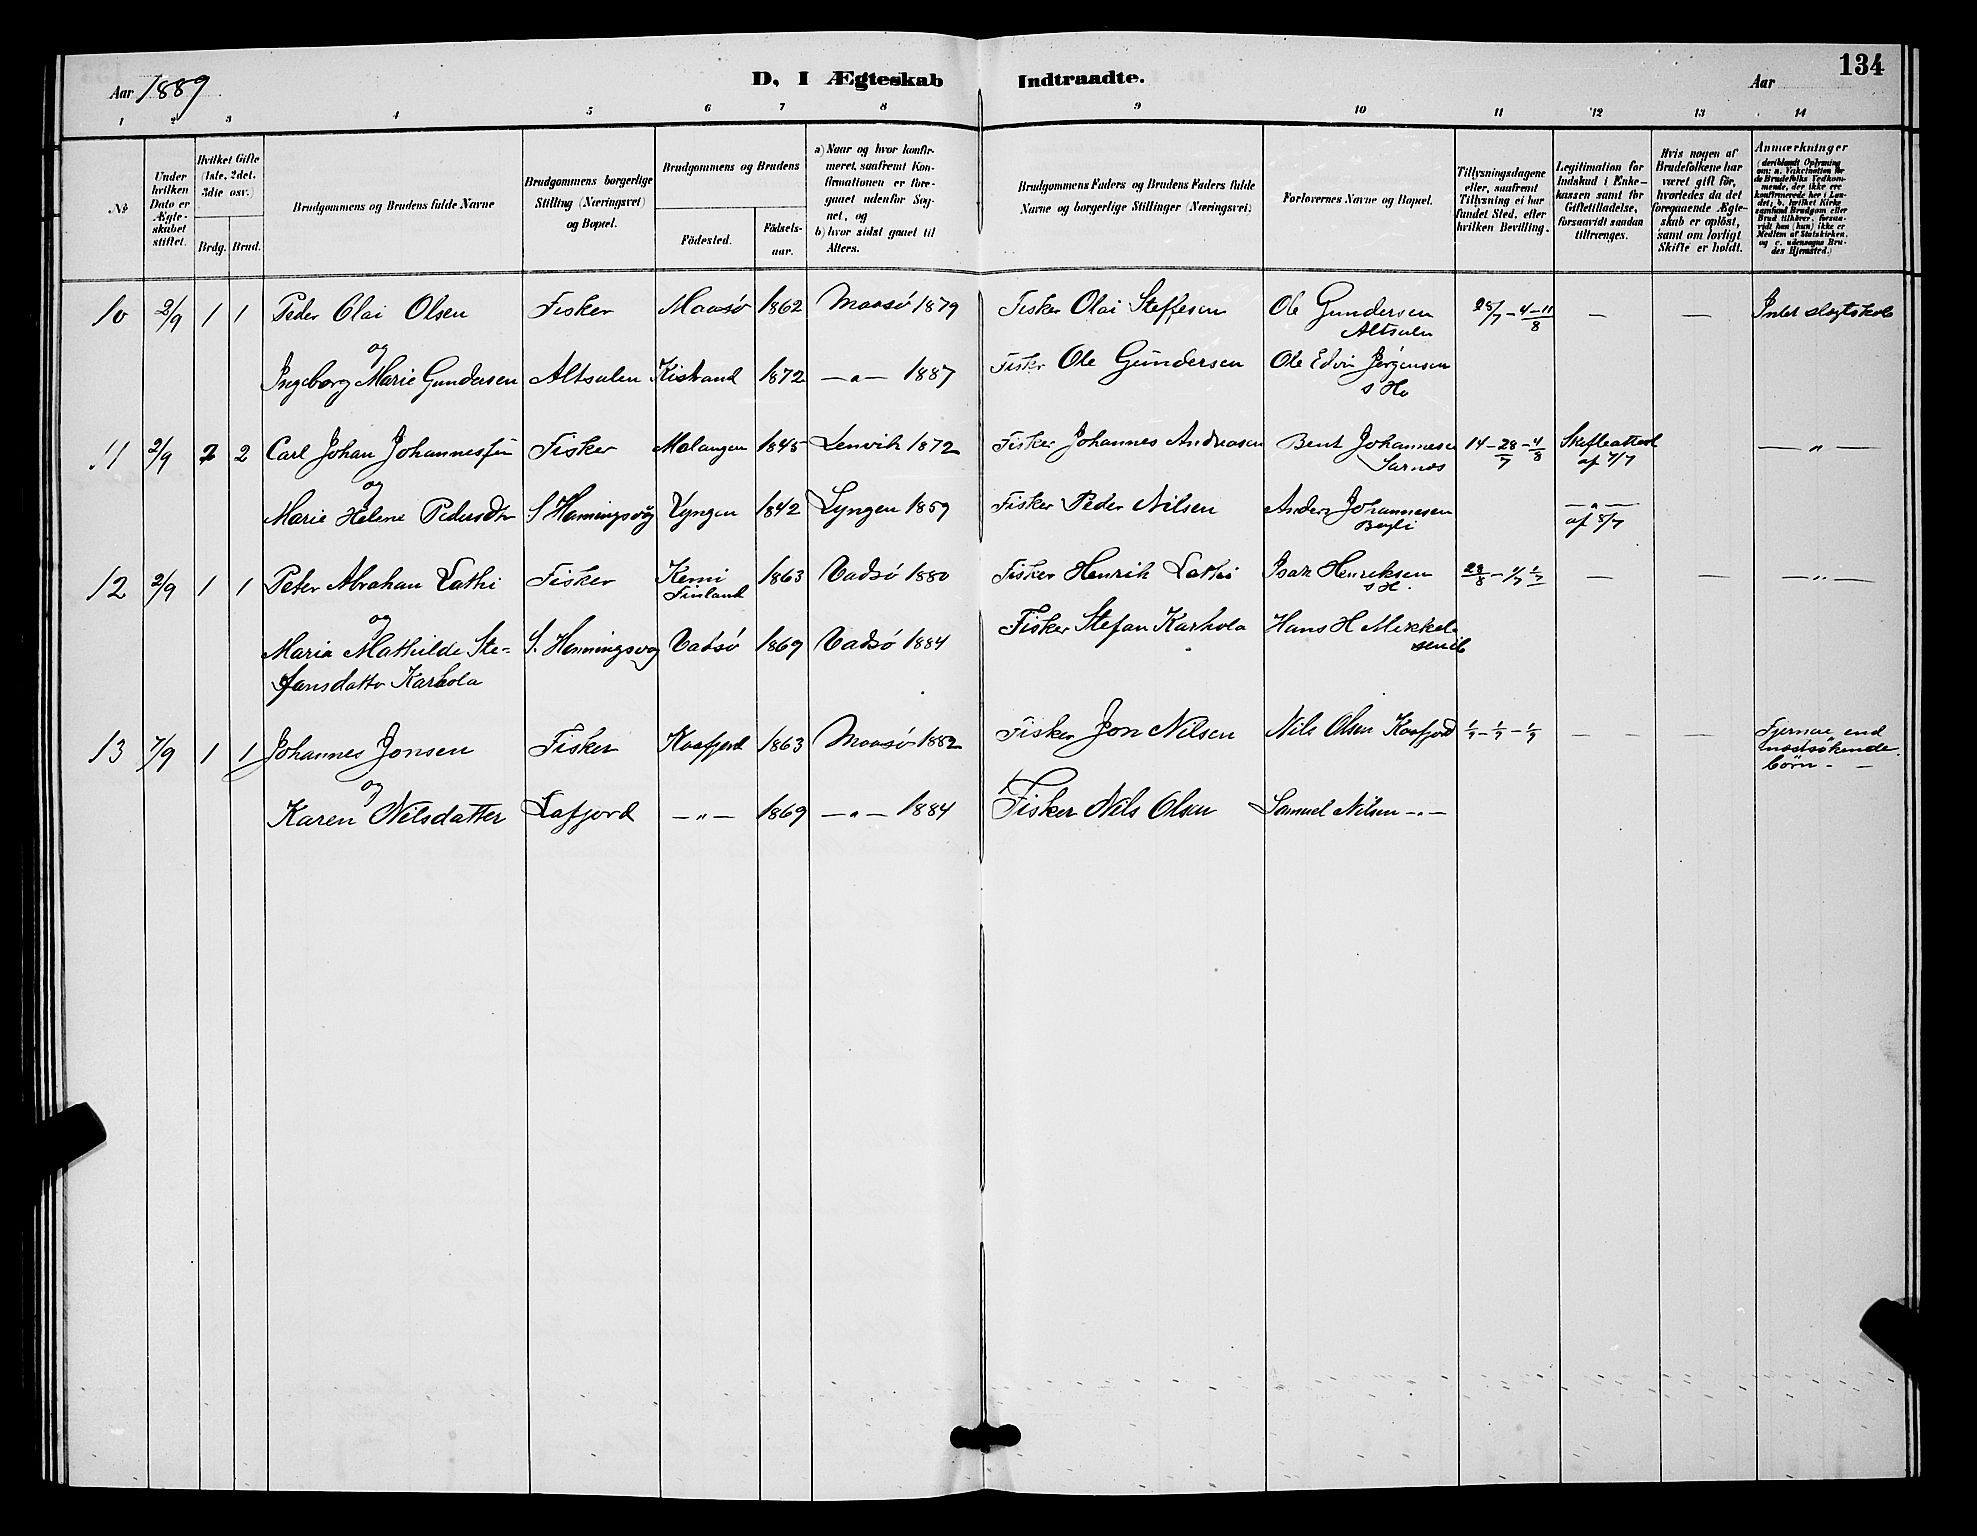 134
Aar 1889
D, I Ægteskab Indtraadte.
Aar
1 2 3 4 5 6 7 8 9 10 11 12 13 14
No
Under hvilken Dato er Ægteskabet stiftet.
Hvilket Gifte (1ste, 2det, 3die osv.)
Brdg. Brud.
Brudgommens og Brudens fulde Navne
Brudgommens borgerlige Stilling (Næringsvei) og Bopæl.
Brudgommens og Brudens
Födested.
Födsels-aar.
a) Naar og hvor konfirmeret, saafremt Konfirmationen er foregaaet udenfor Sognet, og
b) hvor sidst gaaet til Alters.
Brudgommens Faders og Brudens Faders fulde Navne og borgerlige Stillinger (Næringsvei)
Forlovernes Navne og Bopæl.
Tillysningsdagene eller, saafremt Tillysning ei har fundet Sted, efter hvilken Bevilling.
Legitimation for Indskud i Enkekassen samt for Giftetilladelse, forsaavidt saadan tiltrænges.
Hvis nogen af Brudefolkene har været gift för, hvorledes da det foregaaende Ægteskab er oplöst, samt om lovligt Skifte er holdt.
Anmærkninger (deriblandt Oplysning om: a. Vakcination for de Brudefolks Vedkommende, der ikke ere konfirmerede her i Landet, b. hvilket Kirkesamfund Brudgom eller Brud tilhörer, forsaavidt han (hun) ikke er Medlem af Statskirken, og c. udensogns Brudes Hjemsted.)
10 2/9 1 1 Peder Olai Olsen Fisker Maasö 1862 Maasö 1879 Fisker Olai Steffesen Ole Gundersen Altsulen 28/7 - 4 - 11/8 — — Intet slægtskab
og
Ingeborg Marie Gundersen Altsulen Kistrand 1872 — " — 1887 Fisker Ole Gundersen Ole Edvin Jörgensen s Ho
11 2/9 2 2 Carl Johan Johannessen Fisker Malangen 1845 Lenvik 1872 Fisker Johannes Andreasen Bent Johannesen Sarnæs 14 - 28/7 - 4/8 Skifteattest af 7/7 — " —
og
Marie Helene Pedersdtr S Honningsvög Lyngen 1842 Lyngen 1859 Fisker Peder Nilsen Anders Johannesen — " — af 8/7
12 2/9 1 1 Peter Abraham Lathi Fisker Kemi Finland 1863 Vadsö 1880 Fisker Henrik Lathi Isak Henriksen s H. — — — " —
og
Maria Mathilde Ste- S. Honningsvog Vadsö 1869 Vadsö 1884 Fisker Stefan Karhola Hans H Mikkelsen
fansdatter Karhola
13 7/9 1 1 Johannes Jonsen Fisker Kaafjord 1863 Maasö 1882 Fisker Jon Nilsen Nils Olsen Kaafjord 1/7 - 1/7 - 1/7 — — — Fjernere end næstsökende börn. —
og
Karen Nilsdatter Lafjord — " — 1869 — " — 1884 Fisker Nils Olsen Samuel Nilsen — " —